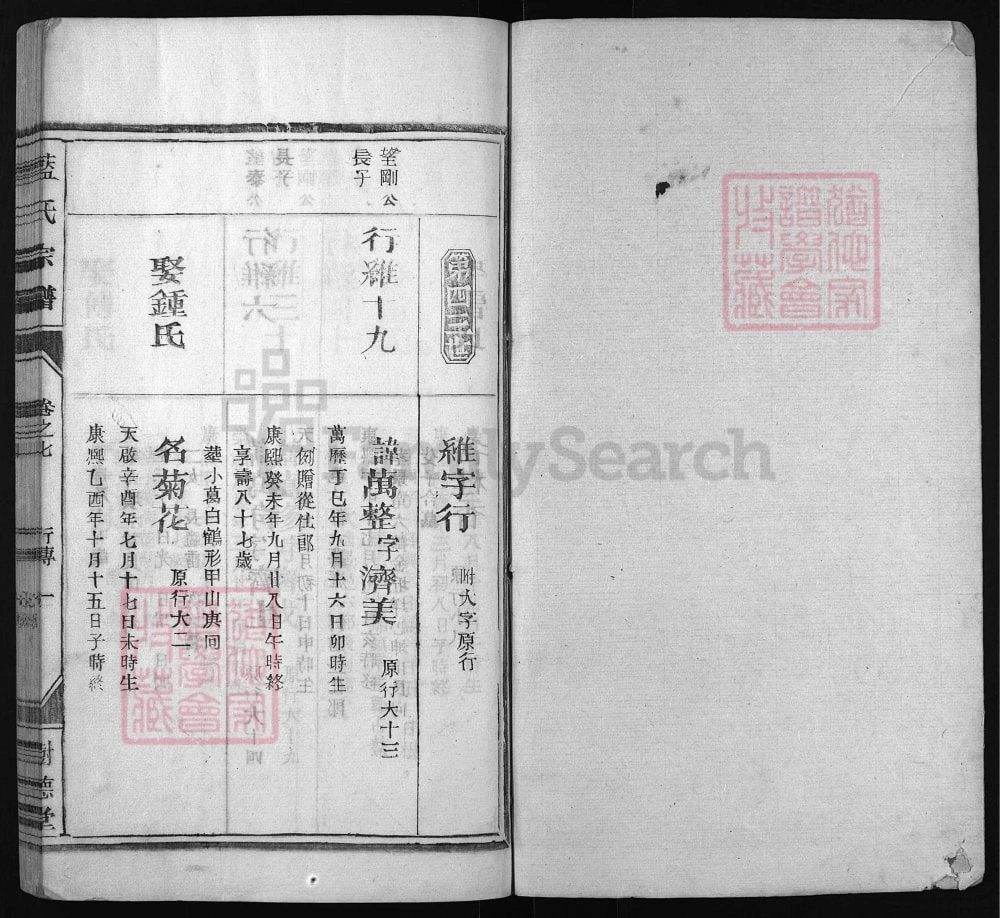 第四二世
維字行
附大字原行
望剛公
長子
行維十九
諱萬整字濟美
原行大十三
萬曆丁巳年九月十六日卯時生
例贈從仕郎
康熙癸未年九月廿八日午時終
享壽八十七歲
塟小葛白鶴形甲山庚向
娶鍾氏
名菊花
原行大二
天啟辛酉年七月十七日未時生
康熙乙酉年十月十五日子時終
藍氏宗譜
卷之七
行傳
一
樹德堂
FamilySearch
猶他家
譜學會
特藏
猶他家
譜學會
特藏